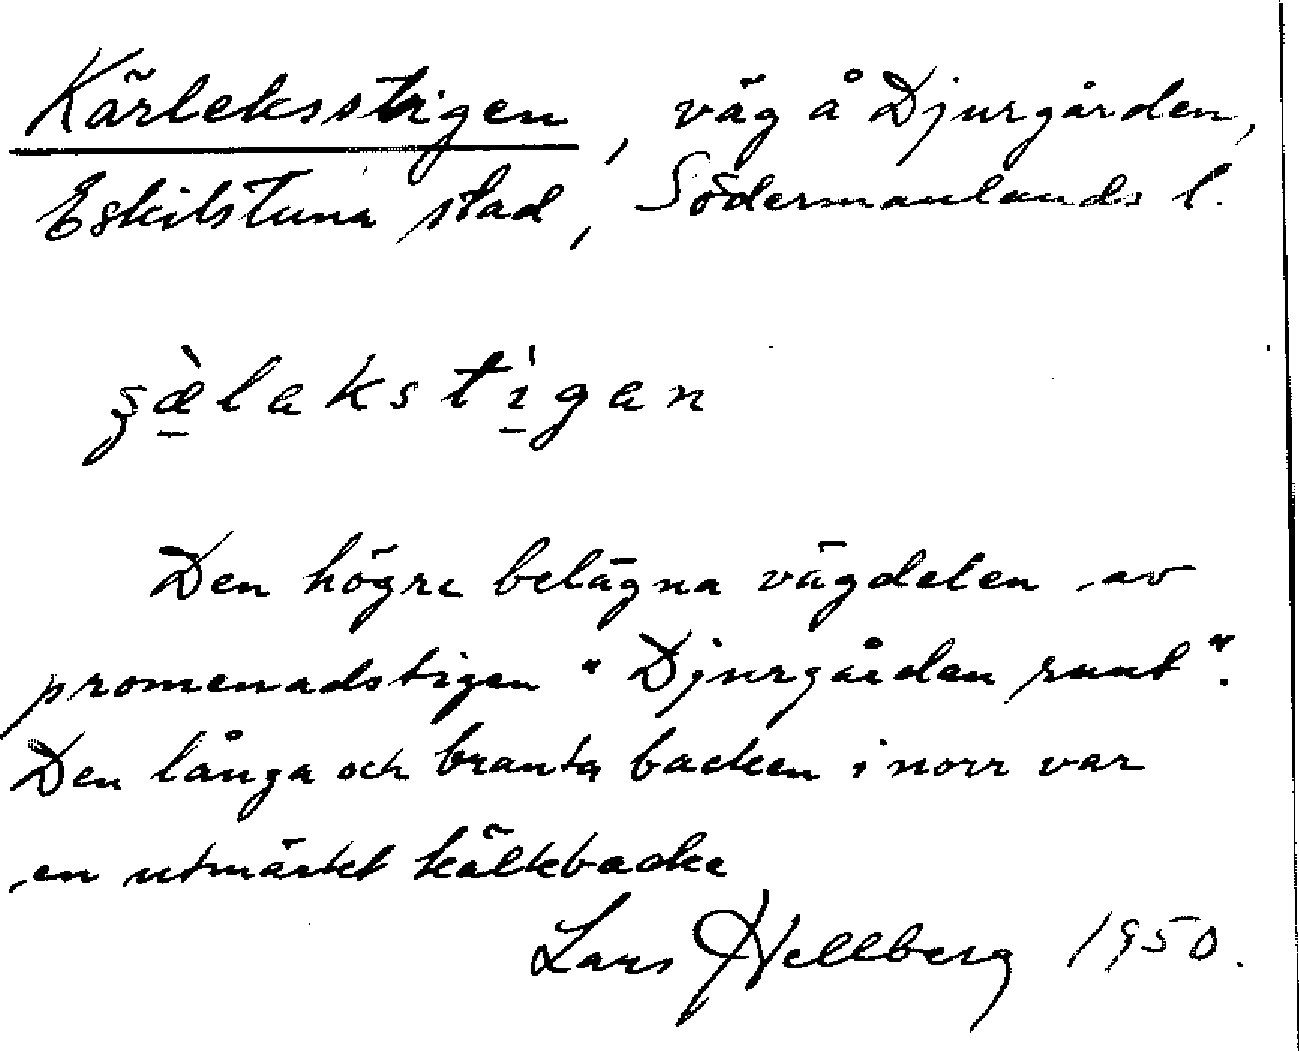 Kärleksstigen, väg å Djurgården,
Eskilstuna stad, Södermanlands l.
ʂæ̀lakstìgan
Den högre belägna vägdelen av
promenadstigen "Djurgården runt".
Den långa och branta backen i norr var
en utmärkt kälkbacke
Lars Hellberg 1950.